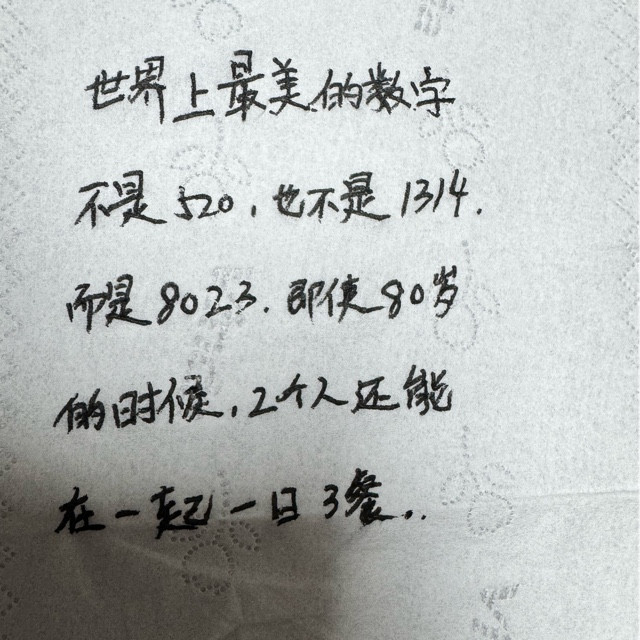 世界上最美的数字
不是520，也不是1314.
而是8023.即使80岁
的时候,2个人还能
在一起一日3餐..